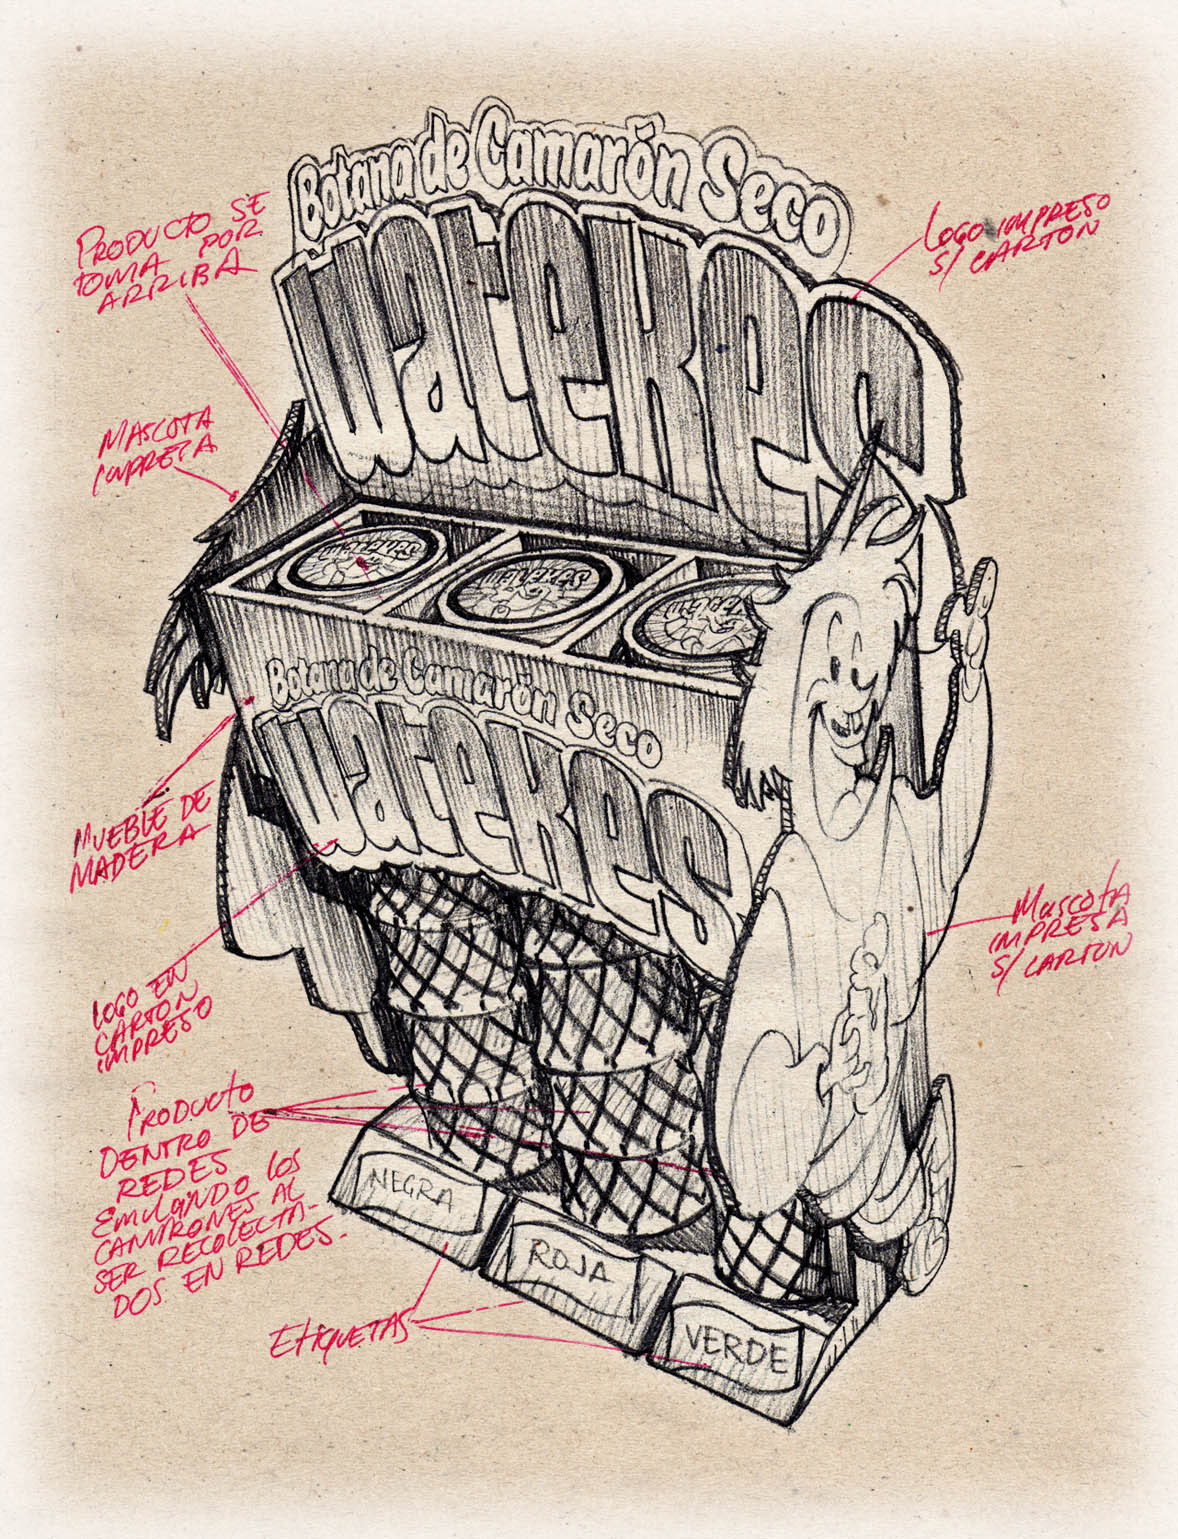 Botana de Camarón Seco
Watekes
PRODUCTO SE
TOMA POR
ARRIBA
LOGO IMPRESO
S/ CARTÓN
MASCOTA
IMPRESA
Botana de Camarón Seco
Watekes
MUEBLE DE
MADERA
MASCOTA
IMPRESA
S/ CARTON
LOGO EN
CARTÓN
IMPRESO
PRODUCTO
DENTRO DE
REDES
EMULANDO LOS
CAMARONES AL
SER RECOLECTA-
DOS EN REDES.
NEGRA
ROJA
VERDE
ETIQUETAS